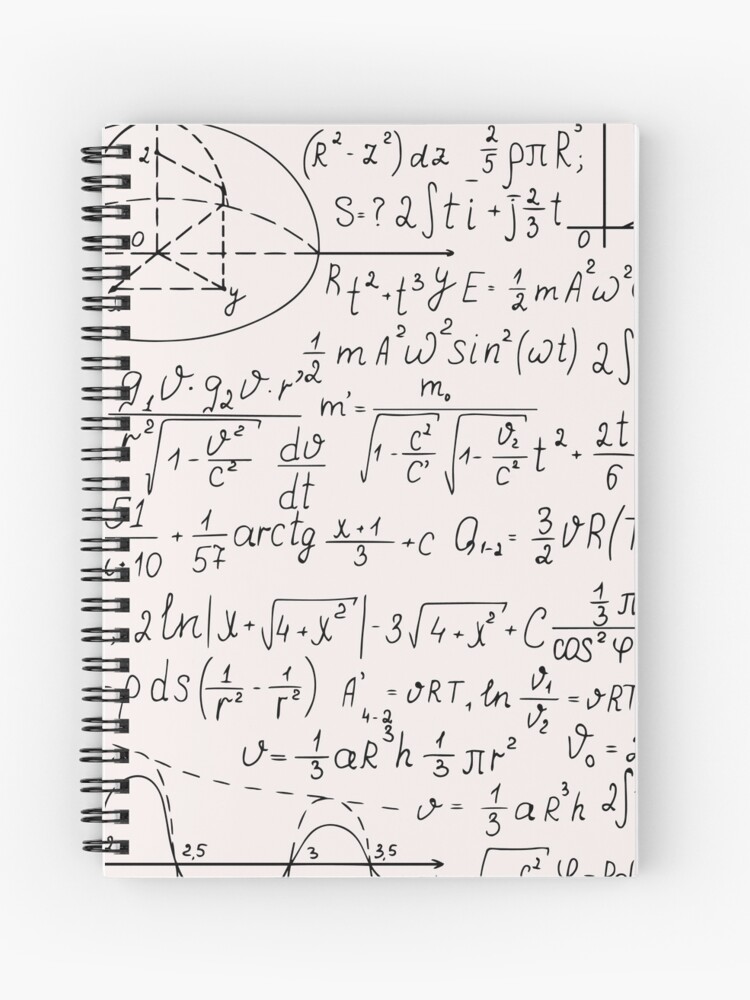 z (R² - z²)dz 2/5 ρπR³;
S=? 2∫t i̅ + j̅ 2/3 t
0 0
R t² + t³ y E = 1/2 mA²ω²
y
1/2 mA²ω² sin²(ωt) 2∫
g₁ϑ · g₂ϑ · r' m' = m₀
r² √(1 - ϑ²/c²) dϑ/dt √(1 - c²/c') √(1 - ϑ₂/c²) t² + 2t/6
51/10 + 1/57 arctg (x+1)/3 + c Q₁₋₂ = 3/2 ϑR(T
2 ln|x + √(4+x²)| - 3√(4+x²) + C 1/3 π/cos²φ
ρds(1/r² - 1/r²) A'₄₋₂ = ϑRT₁ ln ϑ₁/ϑ₂ = ϑRT
ϑ = 1/3 aR³h 1/3 πr² ϑ₀ =
ϑ = 1/3 aR³h 2∫
2,5 3 3,5